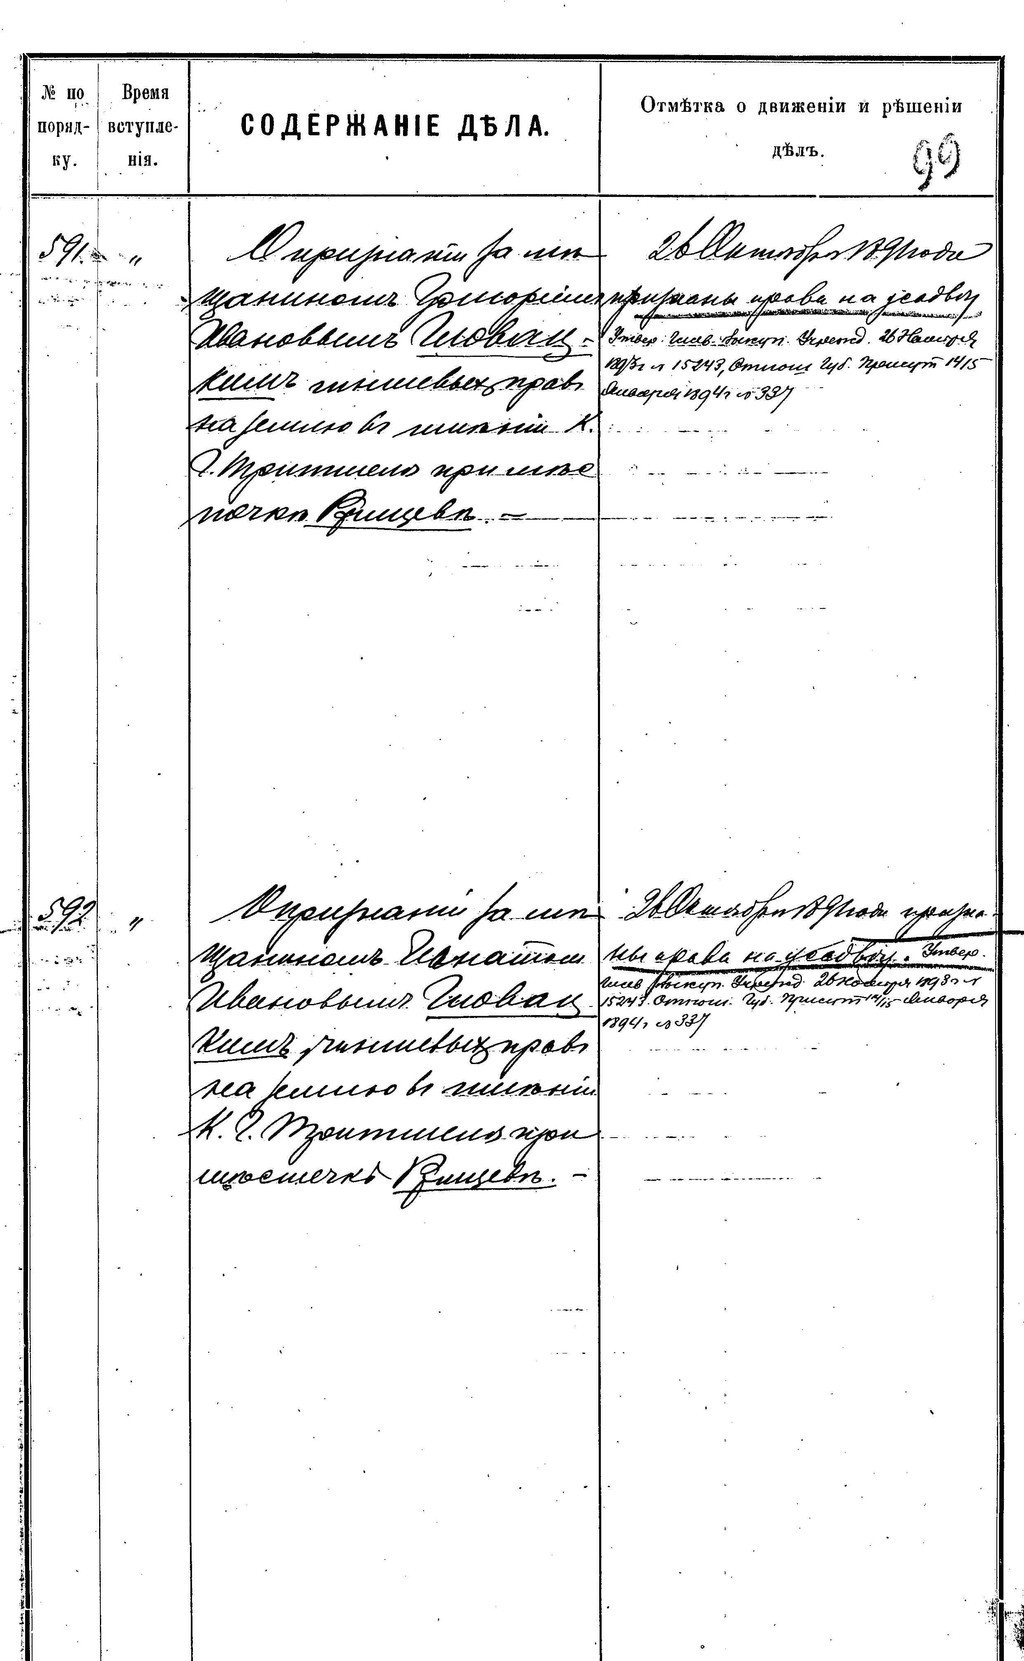 № по поряд- ку.
Время вступле- нія.
СОДЕРЖАНІЕ ДѢЛА.
Отмѣтка о движеніи и рѣшеніи
дѣлъ.
99
591. "
О признаніи за мѣ
щаниномъ Григоріемъ
Ивановымъ Гловац-
кимъ чиншевыхъ правъ
на землю въ имѣніи К.
при мѣс
течкѣ
26 Октября 1891 года
признаны права на усадьбу
Утвер. Глав. Выкуп. Учрежд. 26 Ноября
1893 г № 15243, Отнош. Губ. Присут 14/15
Января 1894 г № 337
592 "
О признаніи за мѣ
щаниномъ Игнатіем
Ивановымъ Гловац
кимъ чиншевыхъ правъ
на землю въ имѣніи
К. при
мѣстечкѣ
26 Октября 1891 года призна-
ны права на усадьбу. Утвер.
Глав Выкуп. Учрежд 26 Ноября 1893 г №
15243. Отнош. Губ. Присут 14/15 Января
1894 г № 337